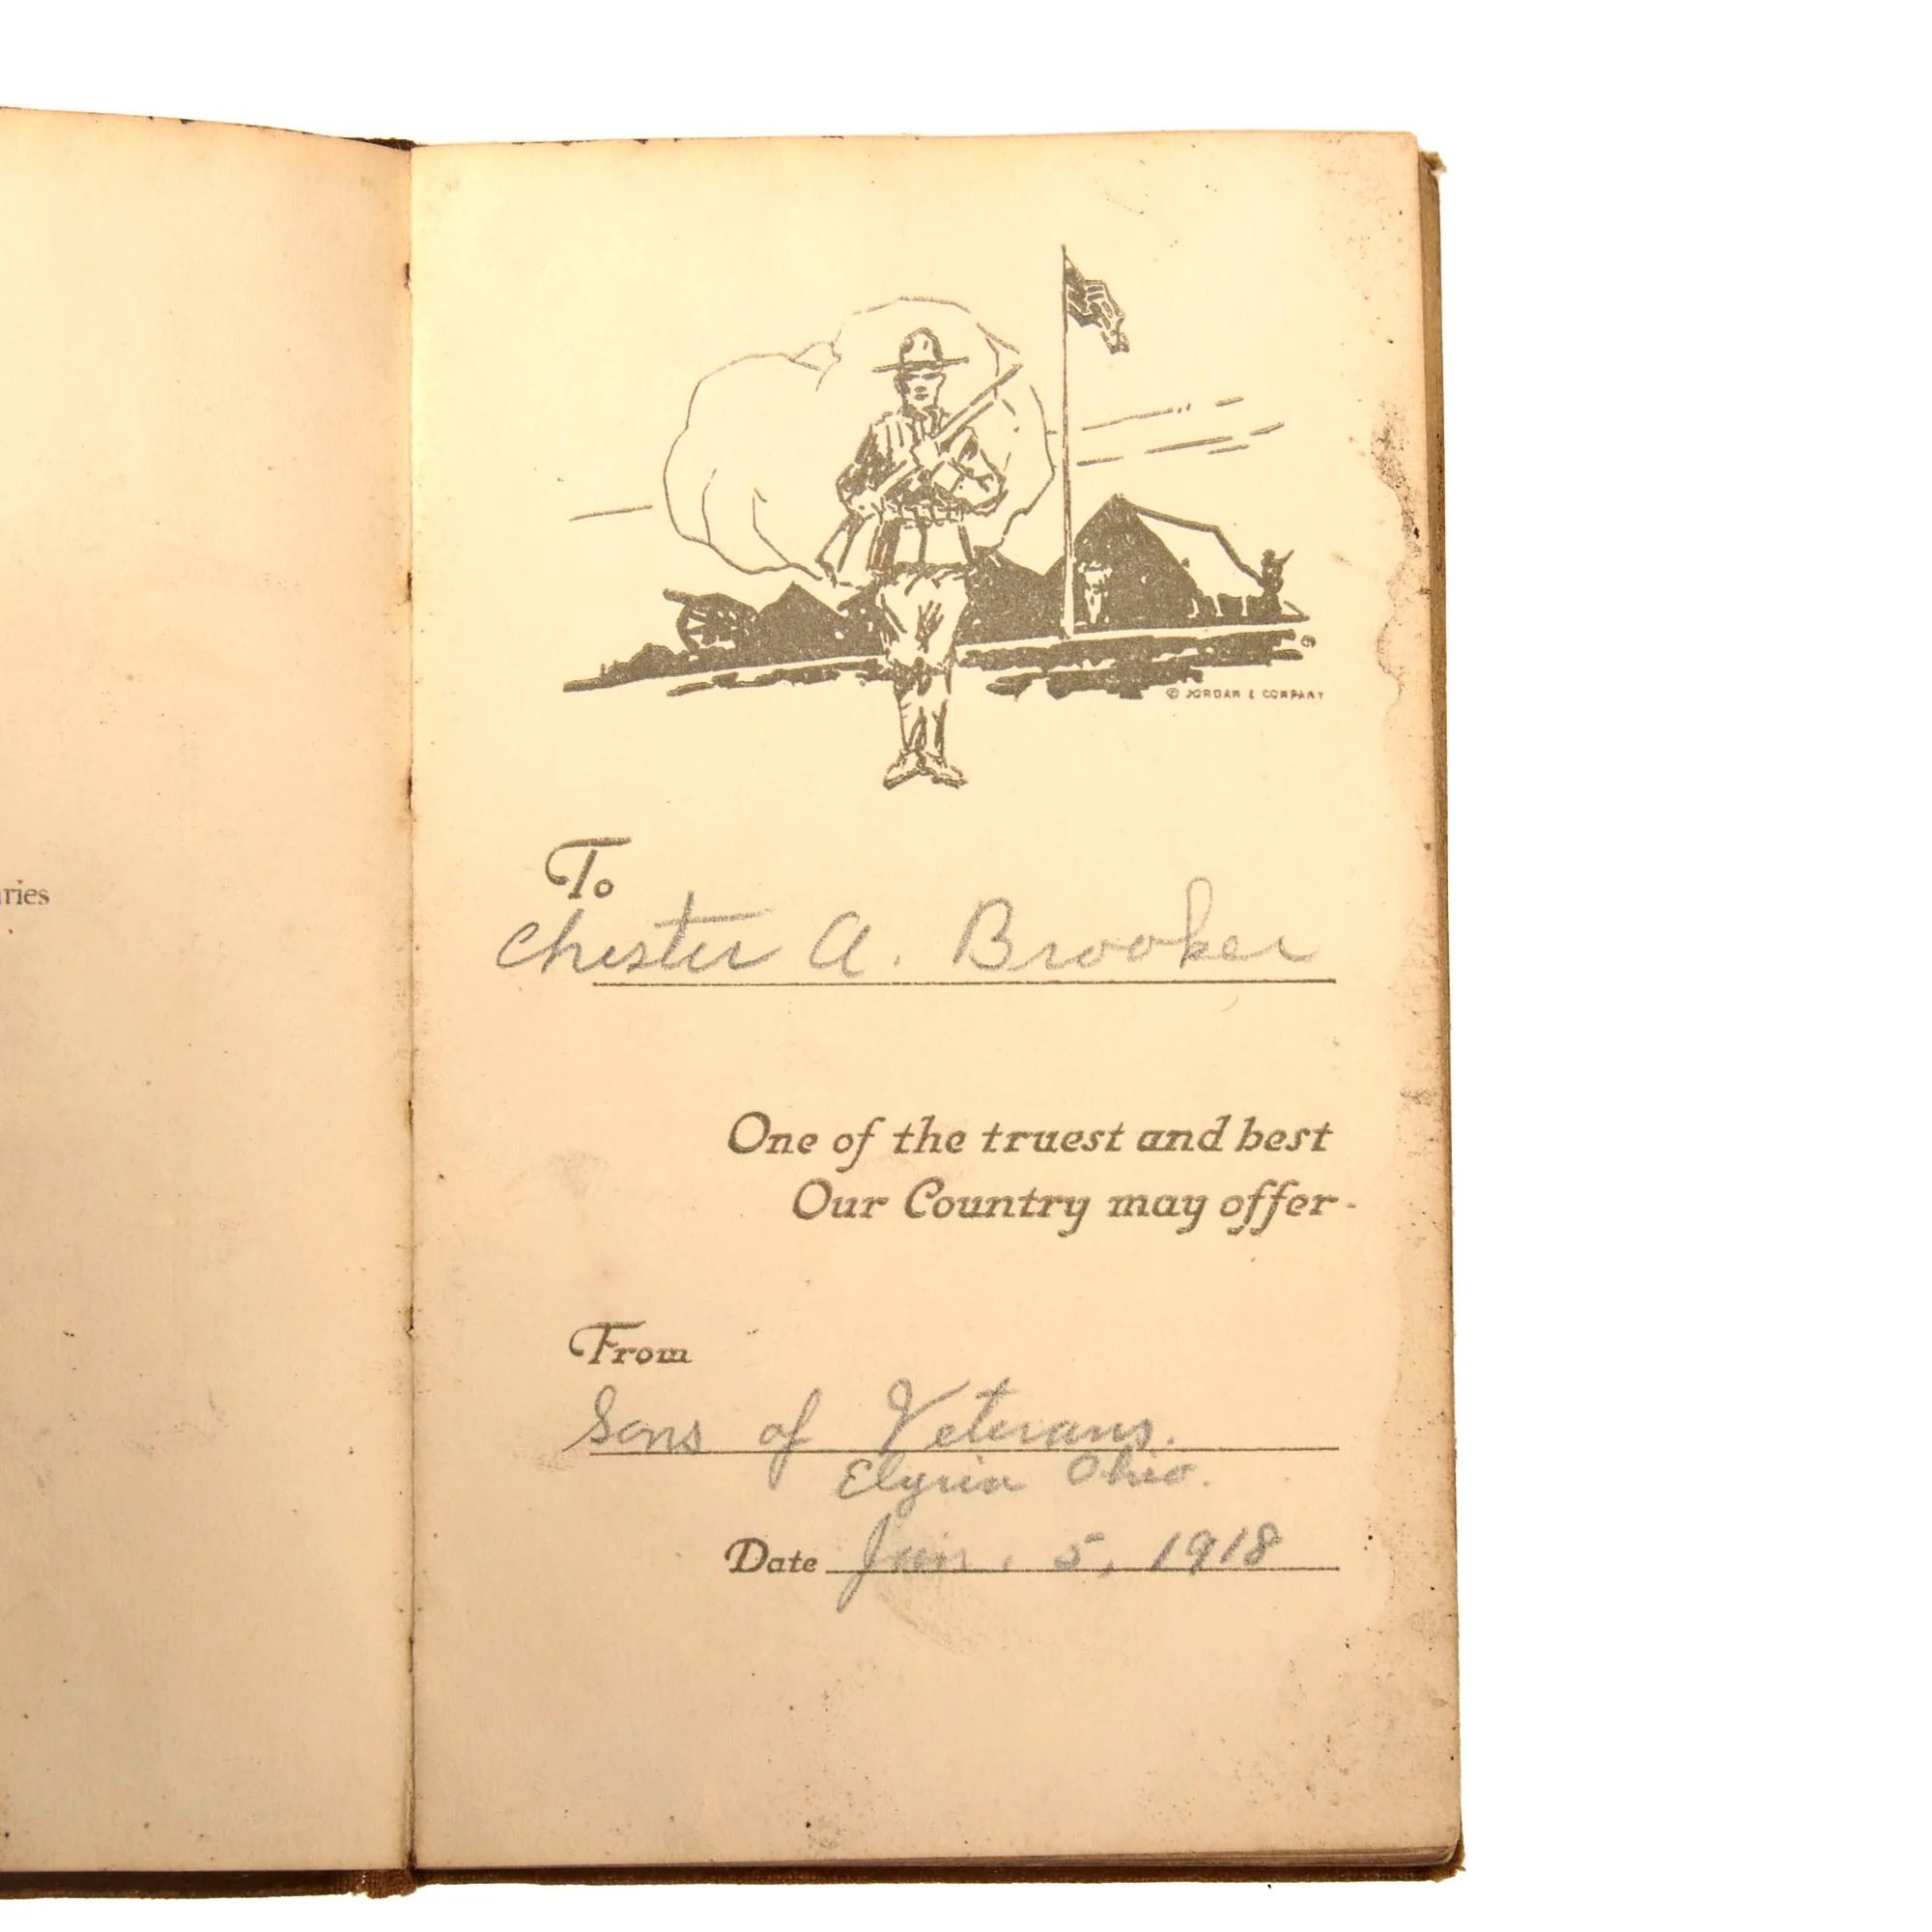 ries
© JORDAN & COMPANY
To
Chester A. Brooker
One of the truest and best
Our Country may offer-
From
Sons of Veterans.
Elyria Ohio.
Date 5, 1918